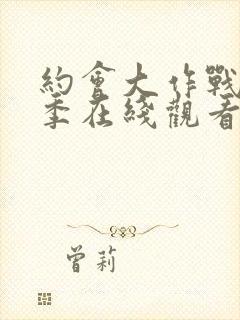 約會大作戰
季在綫觀看
曾莉